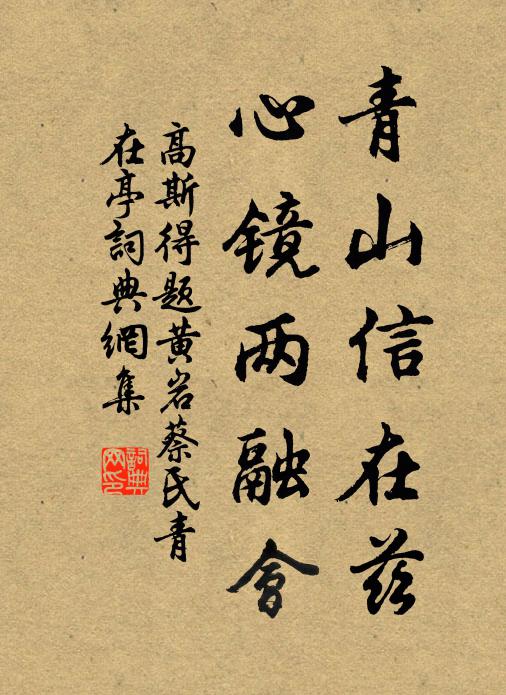 青山信在兹
心镜两融會
高斯得题黄岩蔡氏青
在亭詞典網集
詞典
网印